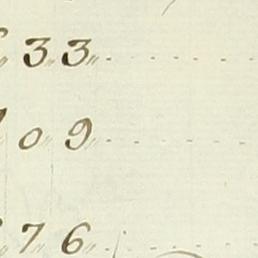 33
09
76